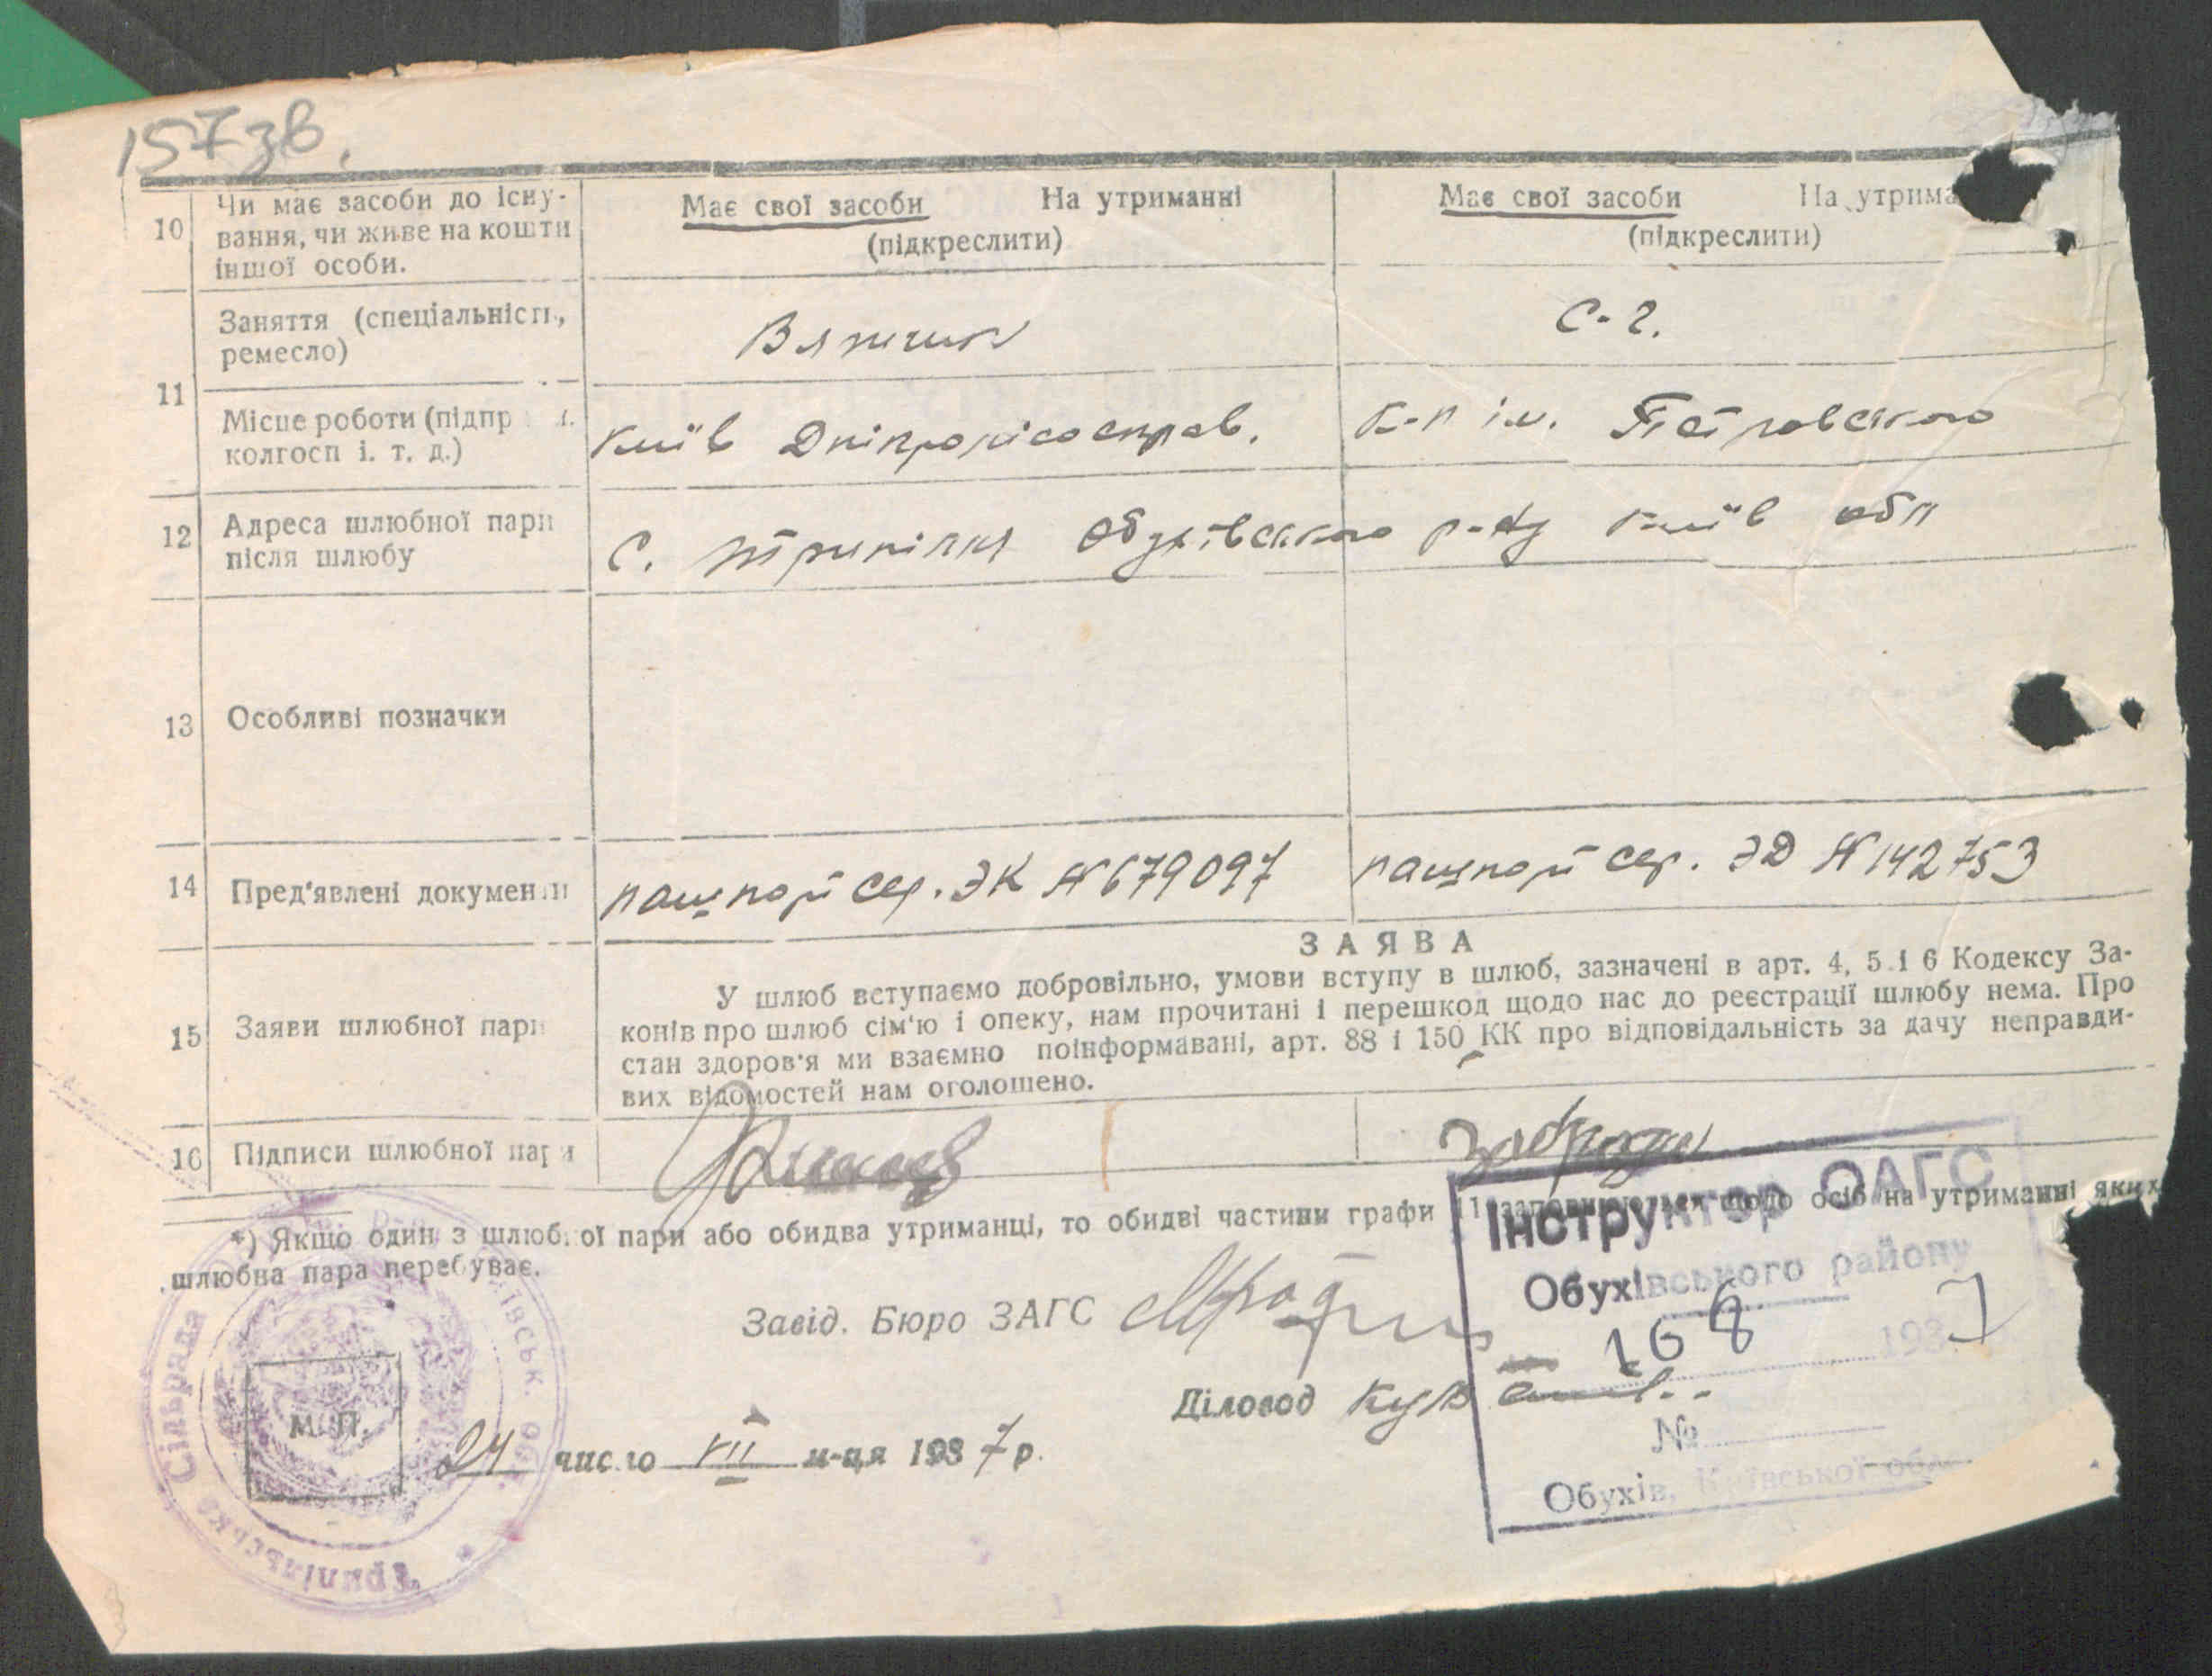 157 зв.
10
Чи має засоби до існу-
вання, чи живе на кошти
іншої особи.
Має свої засоби На утриманні
(підкреслити)
Має свої засоби На утрима
(підкреслити)
11
Заняття (спеціальність,
ремесло)
Вяжчик
С-г.
Місце роботи (підпр
колгосп і. т. д.)
Київ Дніпролісосправ.
К-п ім. Петровського
12
Адреса шлюбної пари
після шлюбу
С. Трипілля Обухівського р-ну Київ обл
13
Особливі позначки
14
Пред'явлені документи
пашпорт сер. ЭК № 679097
пашпорт сер. ЭД № 142753
15
Заяви шлюбної пари
ЗАЯВА
У шлюб вступаємо добровільно, умови вступу в шлюб, зазначені в арт. 4, 5 і 6 Кодексу За-
конів про шлюб сім'ю і опеку, нам прочитані і перешкод щодо нас до реєстрації шлюбу нема. Про
стан здоров'я ми взаємно поінформавані, арт. 88 і 150 КК про відповідальність за дачу неправди-
вих відомостей нам оголошено.
16
Підписи шлюбної пари
*) Якщо один з шлюбної пари або обидва утриманці, то обидві частини графи 11 заповнюються щодо осіб на утриманні яких
шлюбна пара перебуває.
Завід. Бюро ЗАГС
Діловод
М. П.
24 число VII м-ця 1937 р.
Інструктор ОАГС
Обухівського району
16 8 1937
№
Обухів, Київської обл
Трипільська Сільрада